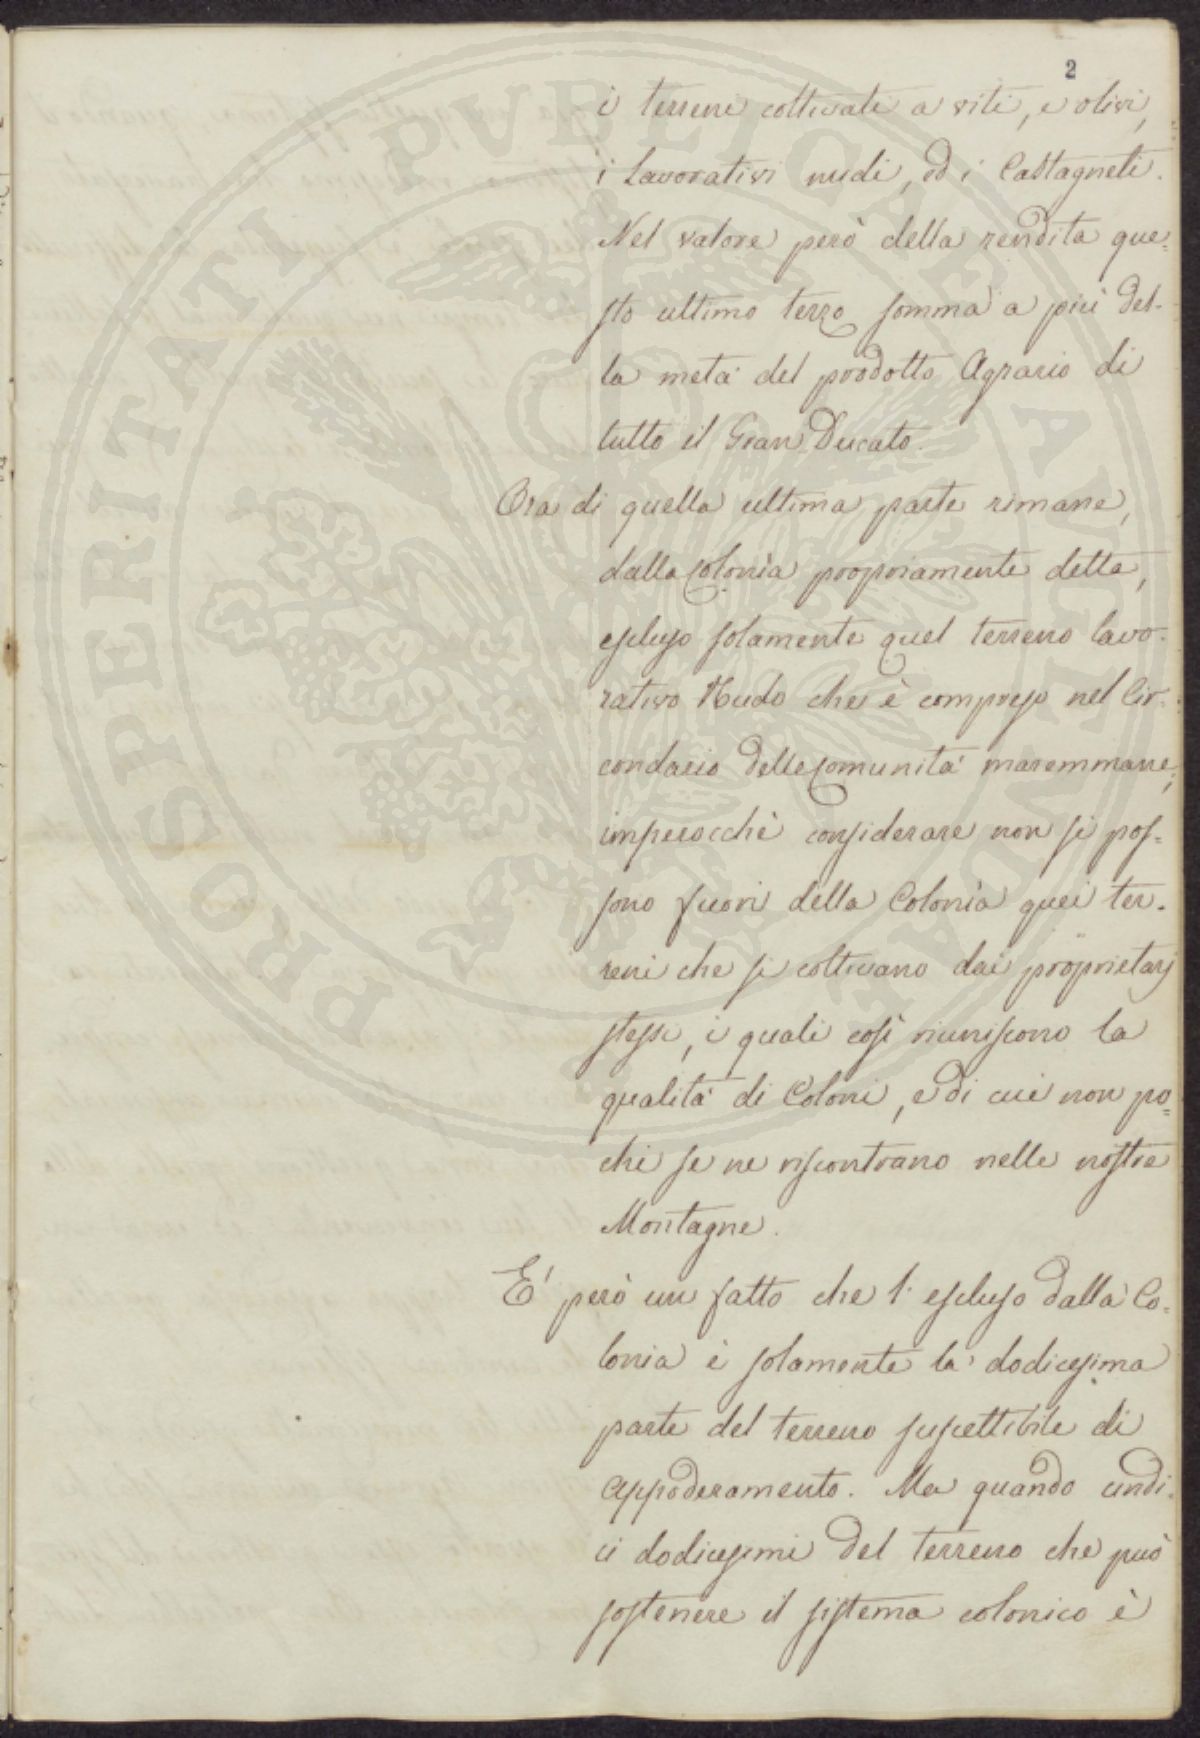 2
i terreni coltivati a viti, e olivi,
i Lavorativi nudi, ed i Castagneti.
Nel valore però della rendita que=
sto ultimo terzo somma a più del-
la metà del prodotto Agrario di
tutto il Gran Ducato.
Ora di quella ultima parte rimane,
dalla Colonìa propriamente detta,
escluso solamente quel terreno lavo-
rativo Nudo che è compreso nel Cir-
condario delle Comunità maremmane;
imperocchè considerare non si pos-
sono fuori della Colonìa quei ter-
reni che si coltivano dai proprietarj
stessi, i quali così riuniscono la
qualità di Coloni, e di cui non po=
chi se ne riscontrano nelle nostre
Montagne.
E' però un fatto che l' escluso dalla Co-
lonia è solamente la dodicesima
parte del terreno suscettibile di
Appoderamento. Ma quando undi-
ci dodicesimi del terreno che può
sostenere il sistema colonico è
PROSPERITATI PVBLICAE AVGENDAE